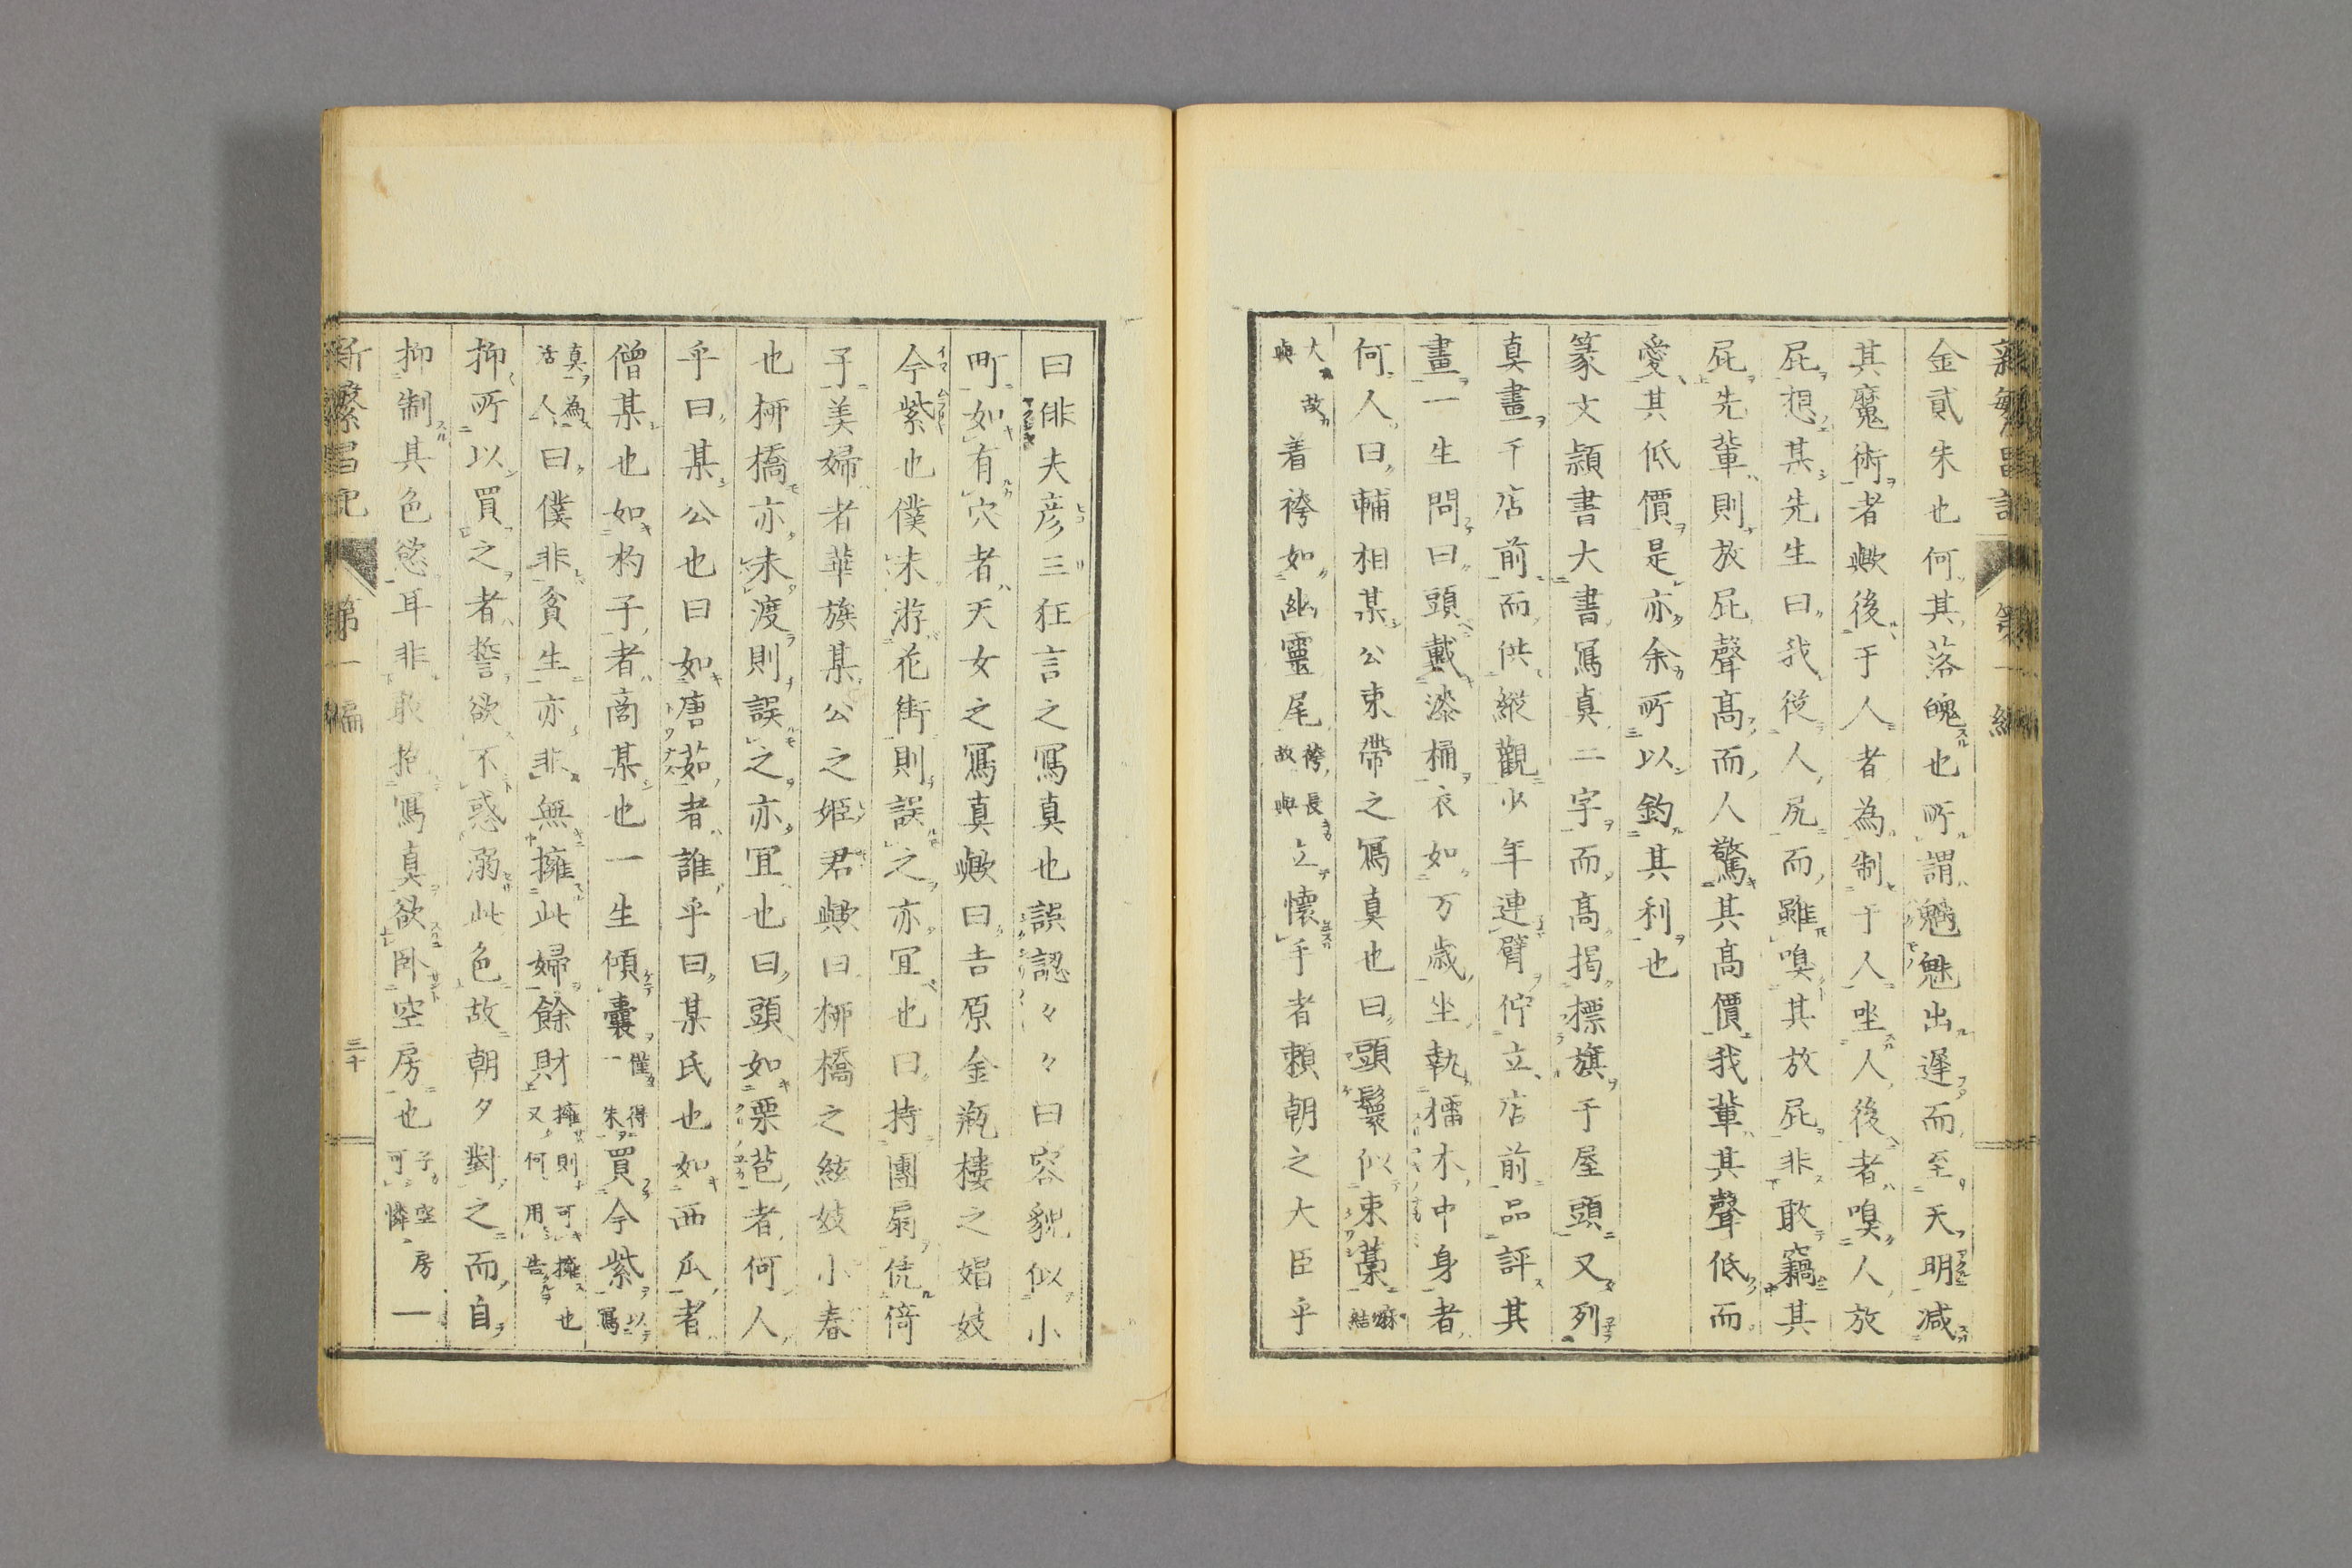 金貳朱也何其落魄也所謂魑魅出遲而至天明减
其魔術者歟後于人者為制于人唑人後者嗅人放
屁想其先生曰我從人尻而雖嗅其放屁非敢竊其
屁先輩則放屁聲高而人驚其高價我輩其聲低而
愛其低價是亦余所以釣其利也
篆文頴書大書寫真二字而高掲標旗于屋頭又列
真畫千店前而供縱觀少年連臂佇立店前品評其
畫一生問曰頭戴漆桶衣如万歳坐執擂木中身者
何人曰輔相某公束帶之寫真也曰頭鬟似束藁
大故着袴如幽靈尾袴長故歟立懷手者賴朝之大臣乎
曰俳夫彦三狂言之寫真也誤認々々曰容貌似小
町如有穴者天女之寫真歟曰吉原金瓶樓之娼妓
今紫也僕未游花街則誤之亦冝也曰持團扇凭倚
子美婦者華族某公之姫君歟曰栁橋之絃妓小春
也栁橋亦未渡則誤之亦冝也曰頭如栗苞者何人
乎曰某公也曰如唐茹者誰乎曰某氏也如西瓜者
僧某也如杓子者商某也一生傾囊僅得一朱買今紫以寫
真為活人曰僕非貧生亦非無擁此婦餘財擁則可擁也又何用告
抑所以買之者誓欲不惑溺此色故朝夕對之而自
抑制其色慾耳非敢抱寫真欲卧空房也子空房可憐一
新繁昌記 第一編 三十